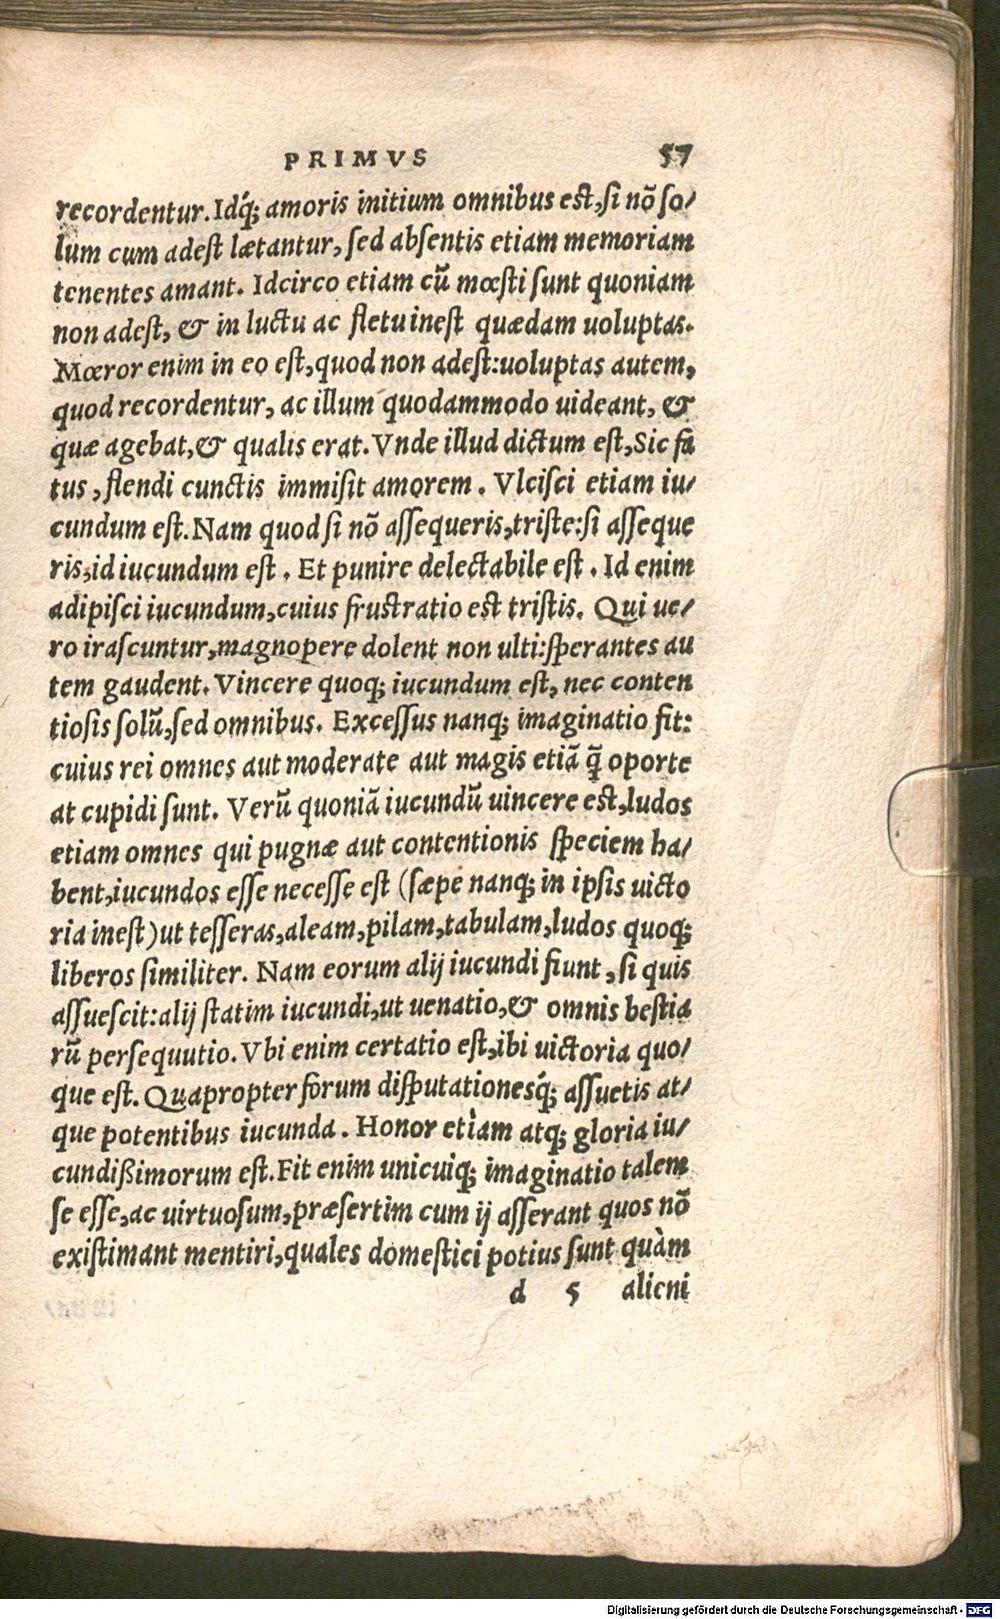 PRIMVS 57
recordentur. Idq́; amoris initium omnibus est, si nõ so/
lum cum adest lætantur, sed absentis etiam memoriam
tenentes amant. Idcirco etiam cũ mœsti sunt quoniam
non adest, & in luctu ac fletu inest quædam uoluptas.
Mœror enim in eo est, quod non adest: uoluptas autem,
quod recordentur, ac illum quodammodo uideant, &
quæ agebat, & qualis erat. Vnde illud dictum est, Sic fa
tus, flendi cunctis immisit amorem. Vlcisci etiam iu/
cundum est. Nam quod si nõ assequeris, triste: si asseque
ris, id iucundum est. Et punire delectabile est. Id enim
adipisci iucundum, cuius frustratio est tristis. Qui ue/
ro irascuntur, magnopere dolent non ulti: sperantes au
tem gaudent. Vincere quoq; iucundum est, nec conten
tiosis solũ, sed omnibus. Excessus nanq; imaginatio fit:
cuius rei omnes aut moderate aut magis etiã q̃ oporte
at cupidi sunt. Verũ quoniã iucundũ uincere est, ludos
etiam omnes qui pugnæ aut contentionis speciem ha/
bent, iucundos esse necesse est (sæpe nanq; in ipsis uicto
ria inest) ut tesseras, aleam, pilam, tabulam, ludos quoq;
liberos similiter. Nam eorum alij iucundi fiunt, si quis
assuescit: alij statim iucundi, ut uenatio, & omnis bestia
rũ persequutio. Vbi enim certatio est, ibi uictoria quo/
que est. Quapropter forum disputationesq́; assuetis at/
que potentibus iucunda. Honor etìam atq; gloria iu/
cundißimorum est. Fit enim unicuiq; imaginatio talem
se esse, ac uirtuosum, præsertim cum ij asserant quos nõ
existimant mentiri, quales domestici potius sunt quàm
d 5 alieni
Digitalisierung gefördert durch die Deutsche Forschungsgemeinschaft - DFG